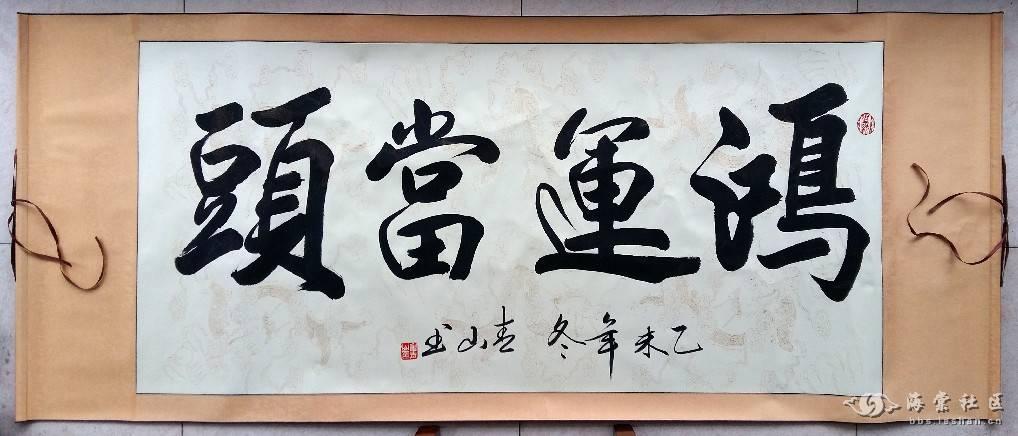 鴻運當頭
乙未年冬 春山书
海棠社区
bbs.leshan.cn